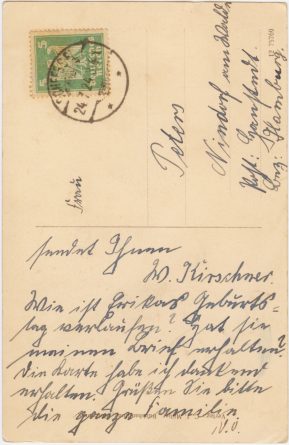 5 5
Frau
Peters
Nindorf am Walde
Post: Hanstedt.
Bez: Hamburg.
sendet Ihnen
W. Kirschner.
Wie ist Erikas Geburts-
tag verlaufen? Hat sie
meinen Brief erhalten?
Die Karte habe ich dankend
erhalten. Grüßen Sie bitte
die ganze Familie.